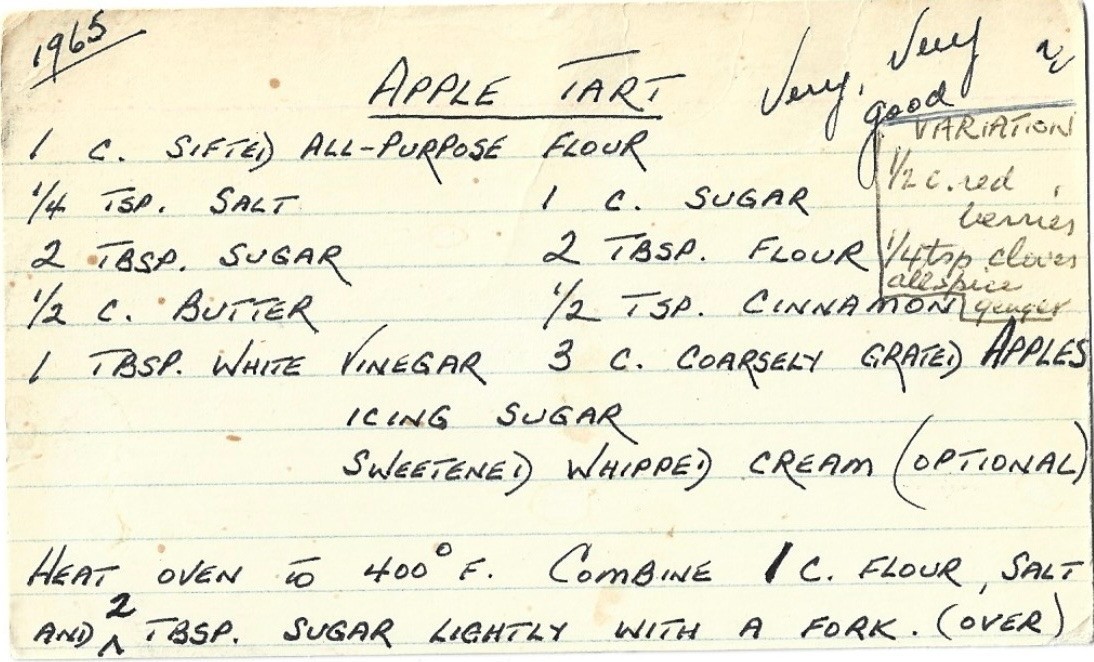 1965
APPLE TART
Very, Very good
VARIATION
1/2 c. red
berries
1/4 tsp cloves
allspice
ginger
1 C. SIFTED ALL-PURPOSE FLOUR
1/4 TSP. SALT 1 C. SUGAR
2 TBSP. SUGAR 2 TBSP. FLOUR
1/2 C. BUTTER 1/2 TSP. CINNAMON
1 TBSP. WHITE VINEGAR 3 C. COARSELY GRATED APPLES
ICING SUGAR
SWEETENED WHIPPED CREAM (OPTIONAL)
HEAT OVEN TO 400° F. COMBINE 1 C. FLOUR, SALT
AND 2 TBSP. SUGAR LIGHTLY WITH A FORK. (OVER)